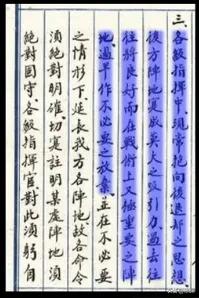 三、各級指揮中、現常抱向後退却之思想、
後方陣地實成莫大之吸引力過去往
往將良好而在戰術上又極重要之陣
地過早作不必要之放棄、並在不必要
之情形下、延長我方各陣地故各命令
須絕對明確、切實註明某處陣地須
絕對固守、各級指揮官對此須躬自